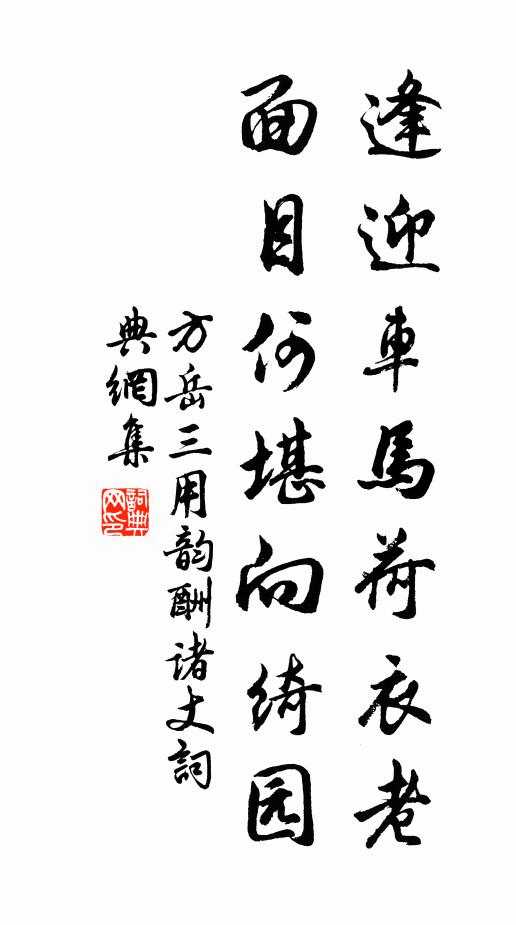 逢迎車馬荷衣老
面目何堪向绮园
方岳三用韵酬诸丈詞
典網集
詞典网印